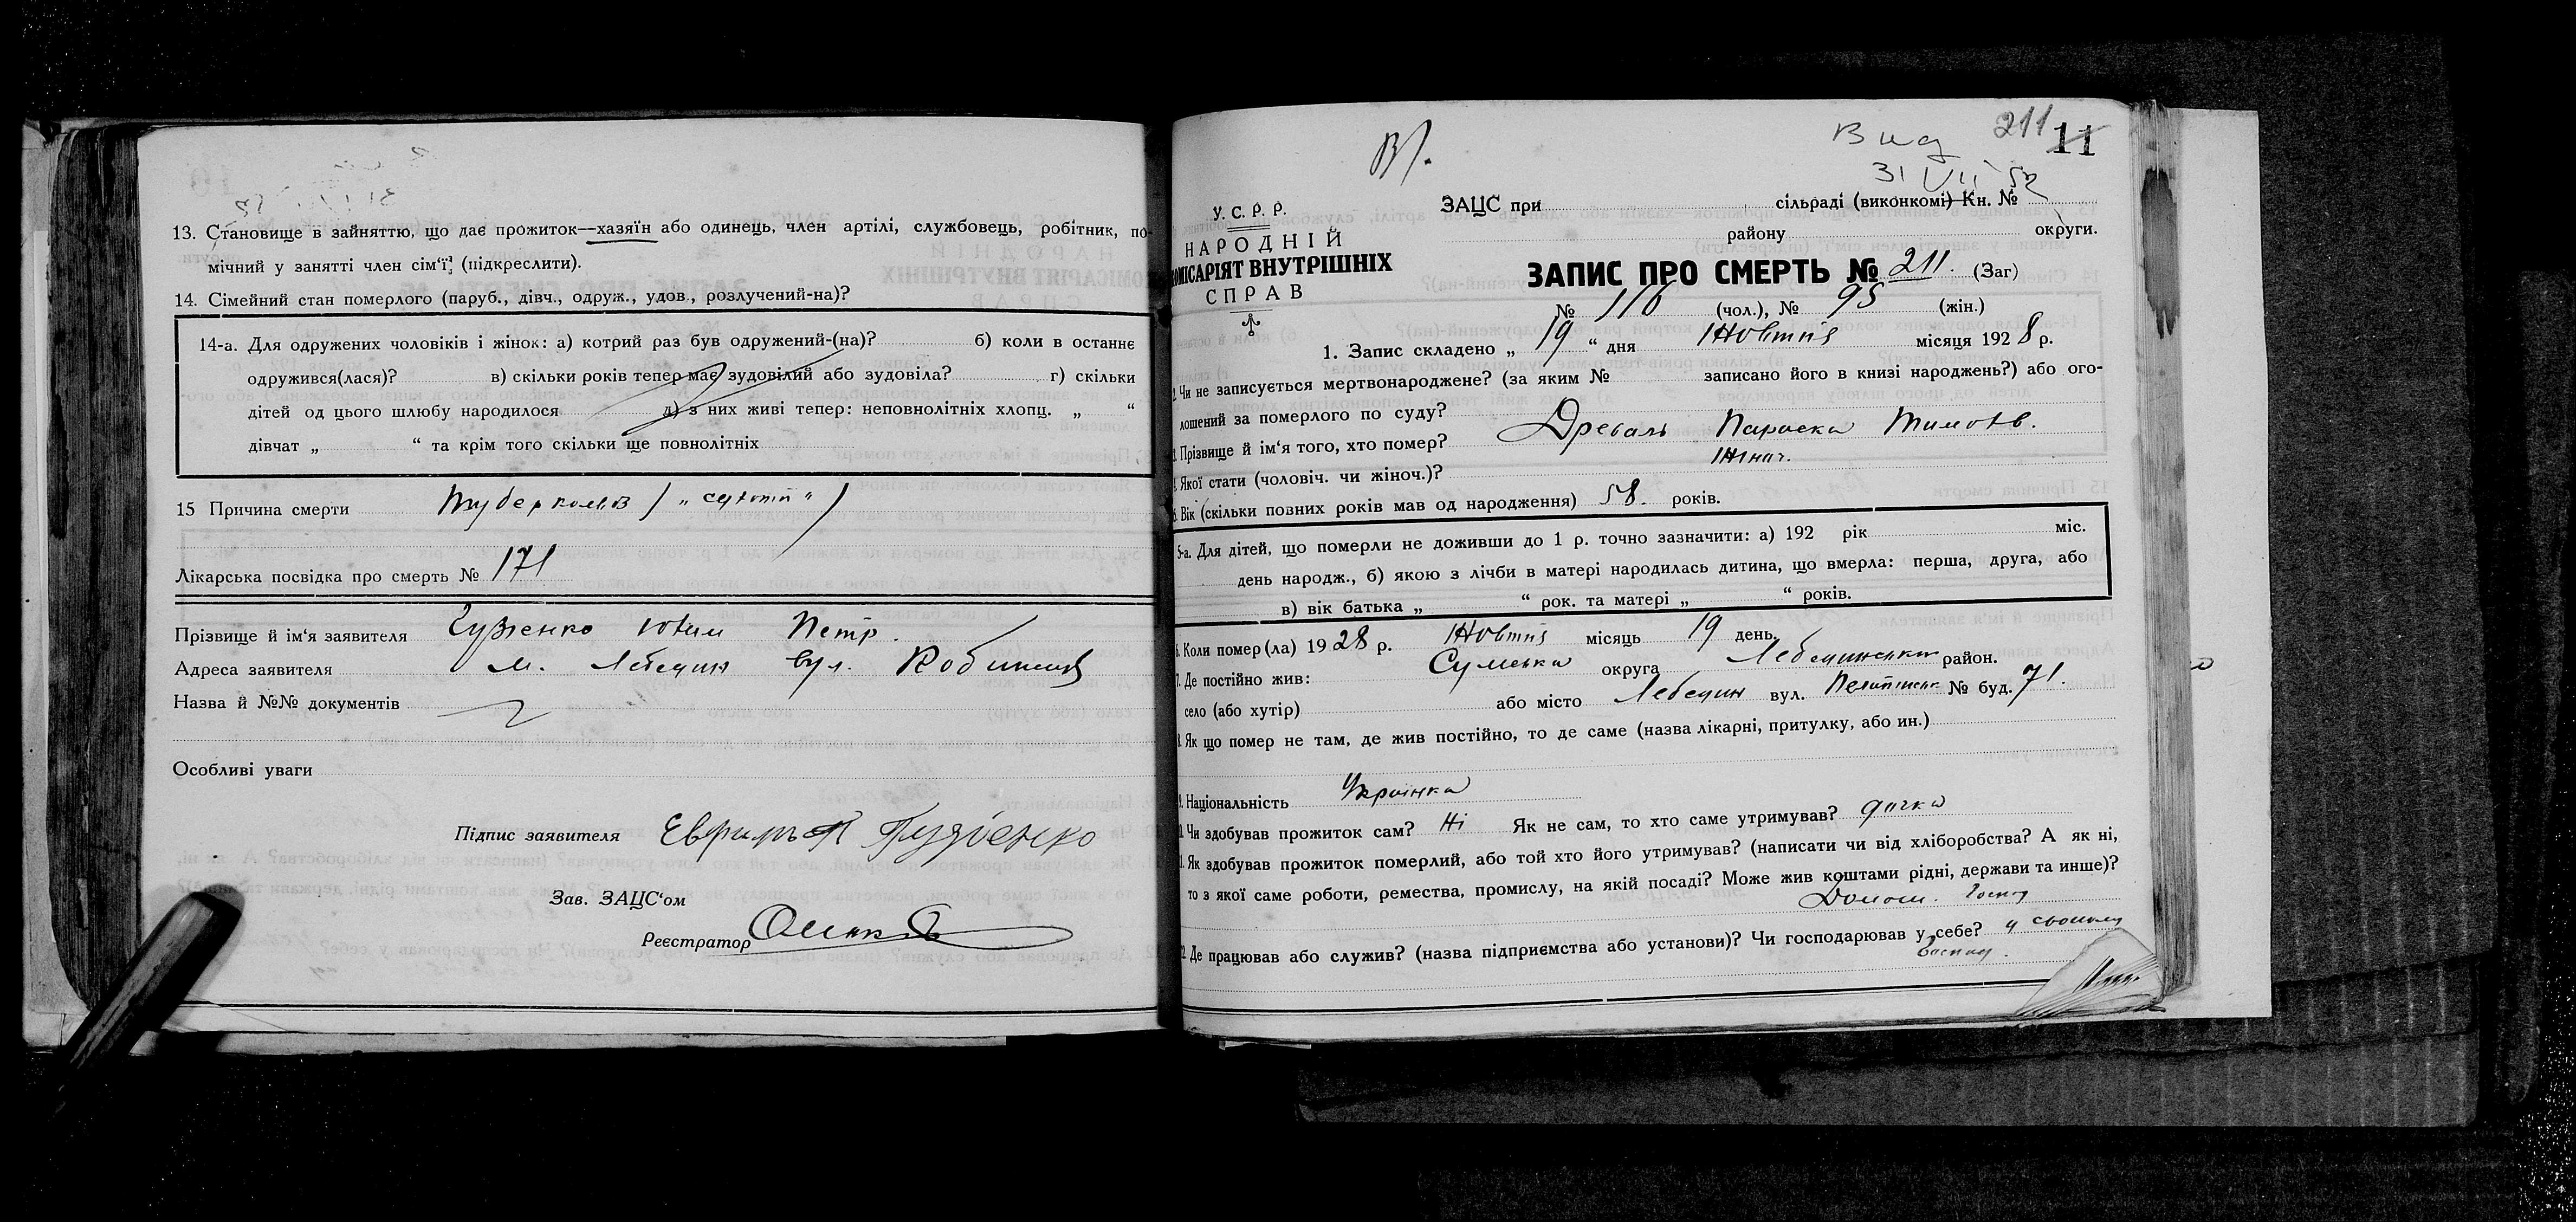 13. Становище в зайняттю, що дає прожиток—хазяїн або одинець, член артілі, службовець, робітник, по-
мічний у занятті член сім'ї (підкреслити).
14. Сімейний стан померлого (паруб., дівч., одруж., удов., розлучений-на)?
14-а. Для одружених чоловіків і жінок: а) котрий раз був одружений-(на)? б) коли в останнє
одружився(лася)? в) скільки років тепер має зудовілий або зудовіла? г) скільки
дітей од цього шлюбу народилося д) з них живі тепер: неповнолітніх хлопц. „ “
дівчат „ “ та крім того скільки ще повнолітніх
15 Причина смерти Туберкольоз ( „сухоти“ )
Лікарська посвідка про смерть № 171
Прізвище й ім'я заявителя Петр.
Адреса заявителя м. Лебедин вул.
Назва й №№ документів
Особливі уваги
Підпис заявителя
Зав. ЗАЦС'ом
Реєстратор
В/.
Вид 211 11
31 VII 52
У. С. Р. Р.
НАРОДНІЙ
КОМІСАРІЯТ ВНУТРІШНІХ
СПРАВ
ЗАЦС при сільраді (виконкомі) Кн. №
району округи.
ЗАПИС ПРО СМЕРТЬ № 211. (Заг)
№ 116 (чол.), № 95 (жін.)
1. Запис складено „ 19 “ дня Жовтня місяця 1928 р.
2. Чи не записується мертвонароджене? (за яким № записано його в книзі народжень?) або ого-
лошений за померлого по суду?
3. Прізвище й ім'я того, хто помер? Древаль Параска Тимофів.
4. Якої стати (чоловіч. чи жіноч.)? Жіноч.
5. Вік (скільки повних років мав од народження) 58. років.
5-а. Для дітей, що померли не доживши до 1 р. точно зазначити: а) 192 рік міс.
день народж., б) якою з лічби в матері народилась дитина, що вмерла: перша, друга, або
в) вік батька „ “ рок. та матері „ “ років.
6. Коли помер(ла) 1928 р. Жовтня місяць 19 день.
7. Де постійно жив: Сумська округа Лебединський район.
село (або хутір) або місто Лебедин вул. № буд. 71.
8. Як що помер не там, де жив постійно, то де саме (назва лікарні, притулку, або ин.)
9. Національність Українка
10. Чи здобував прожиток сам? Ні Як не сам, то хто саме утримував? дочка
11. Як здобував прожиток померлий, або той хто його утримував? (написати чи від хліборобства? А як ні,
то з якої саме роботи, ремества, промислу, на якій посаді? Може жив коштами рідні, держави та инше)?
Домаш. Госпд
12 Де працював або служив? (назва підприємства або установи)? Чи господарював у себе? у своїому
Госпд.